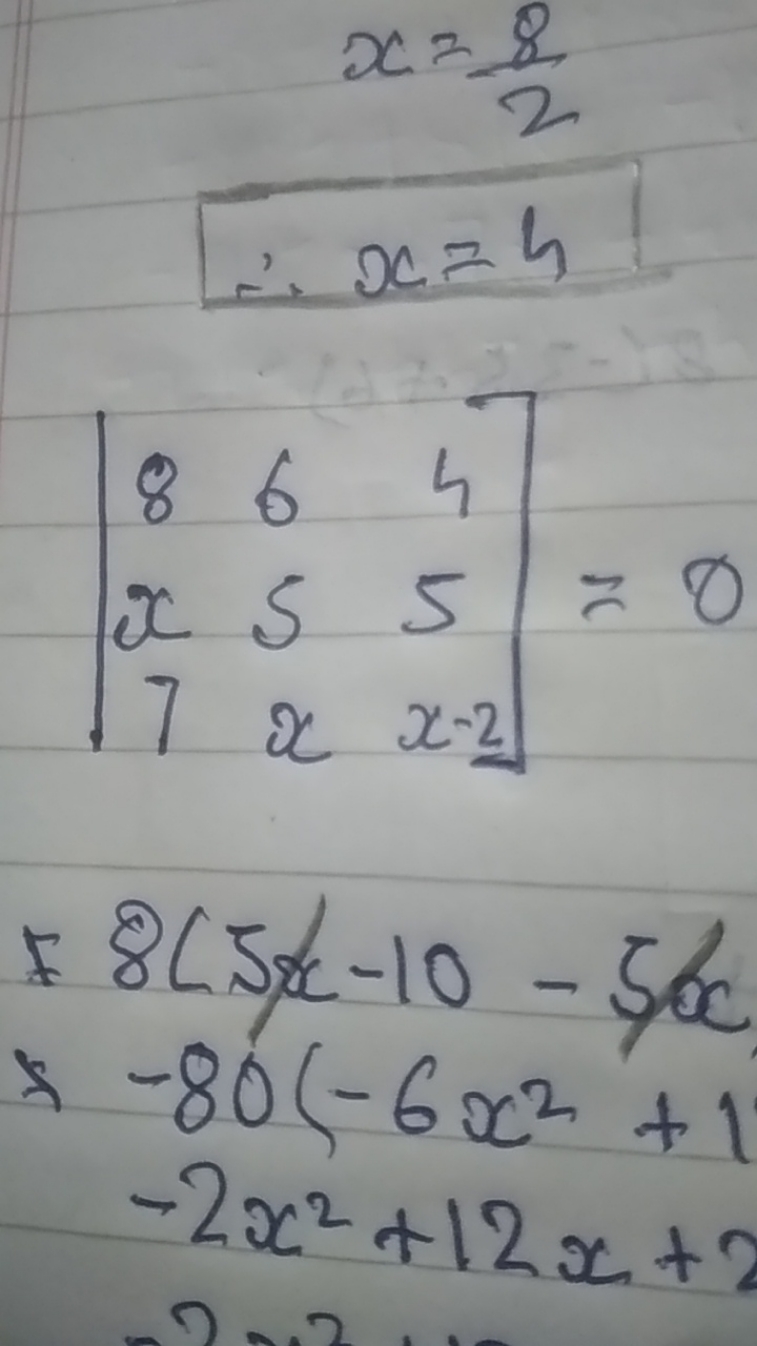 x = 8/2
∴ x = 4
8 6 4
x 5 5 = 0
7 x x-2
8(5x - 10 - 5x
-80(-6x² + 1
-2x² + 12x + 2